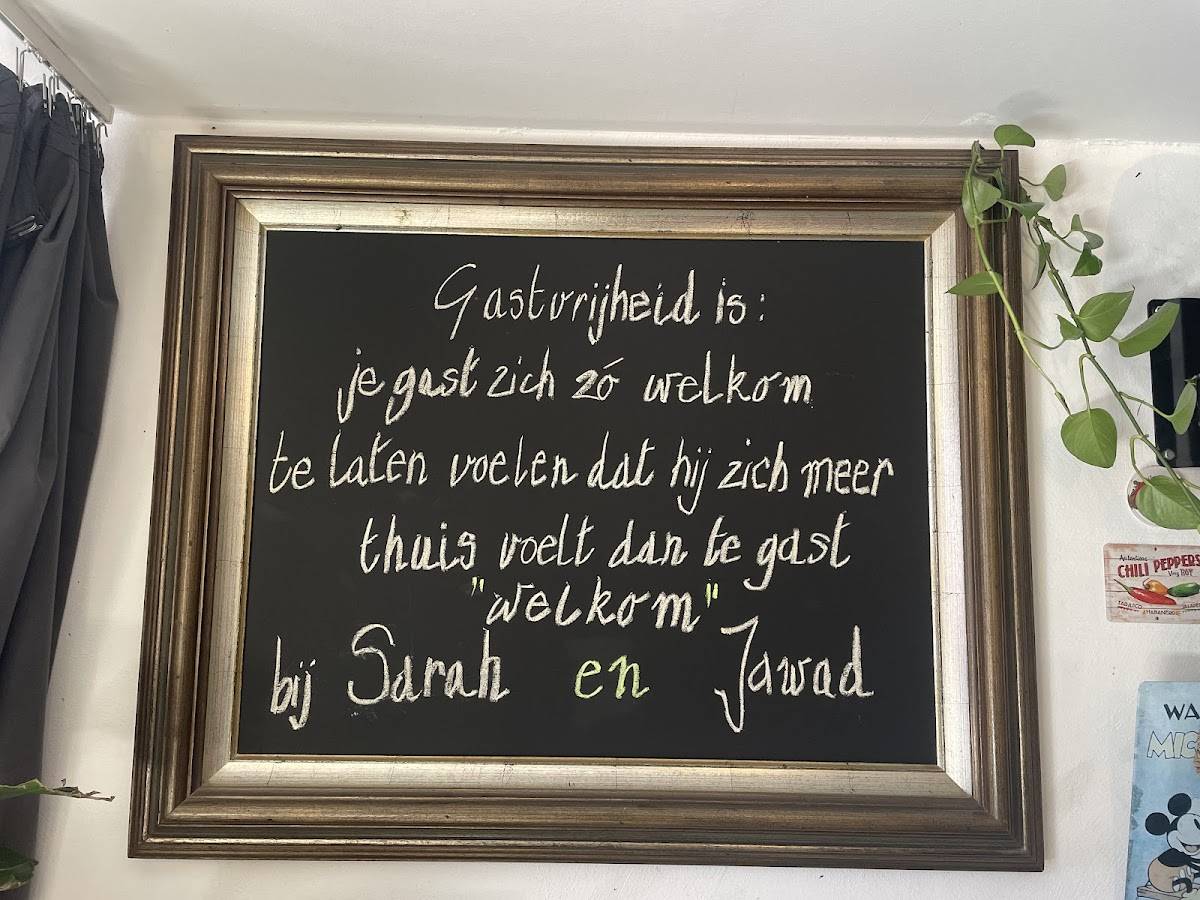 Gastvrijheid is:
je gast zich zó welkom
te laten voelen dat hij zich meer
thuis voelt dan te gast
"welkom"
bij Sarah en Jawad
CHILI PEPPERS
Very HOT
TABASCO HABANERO
WA
MIC